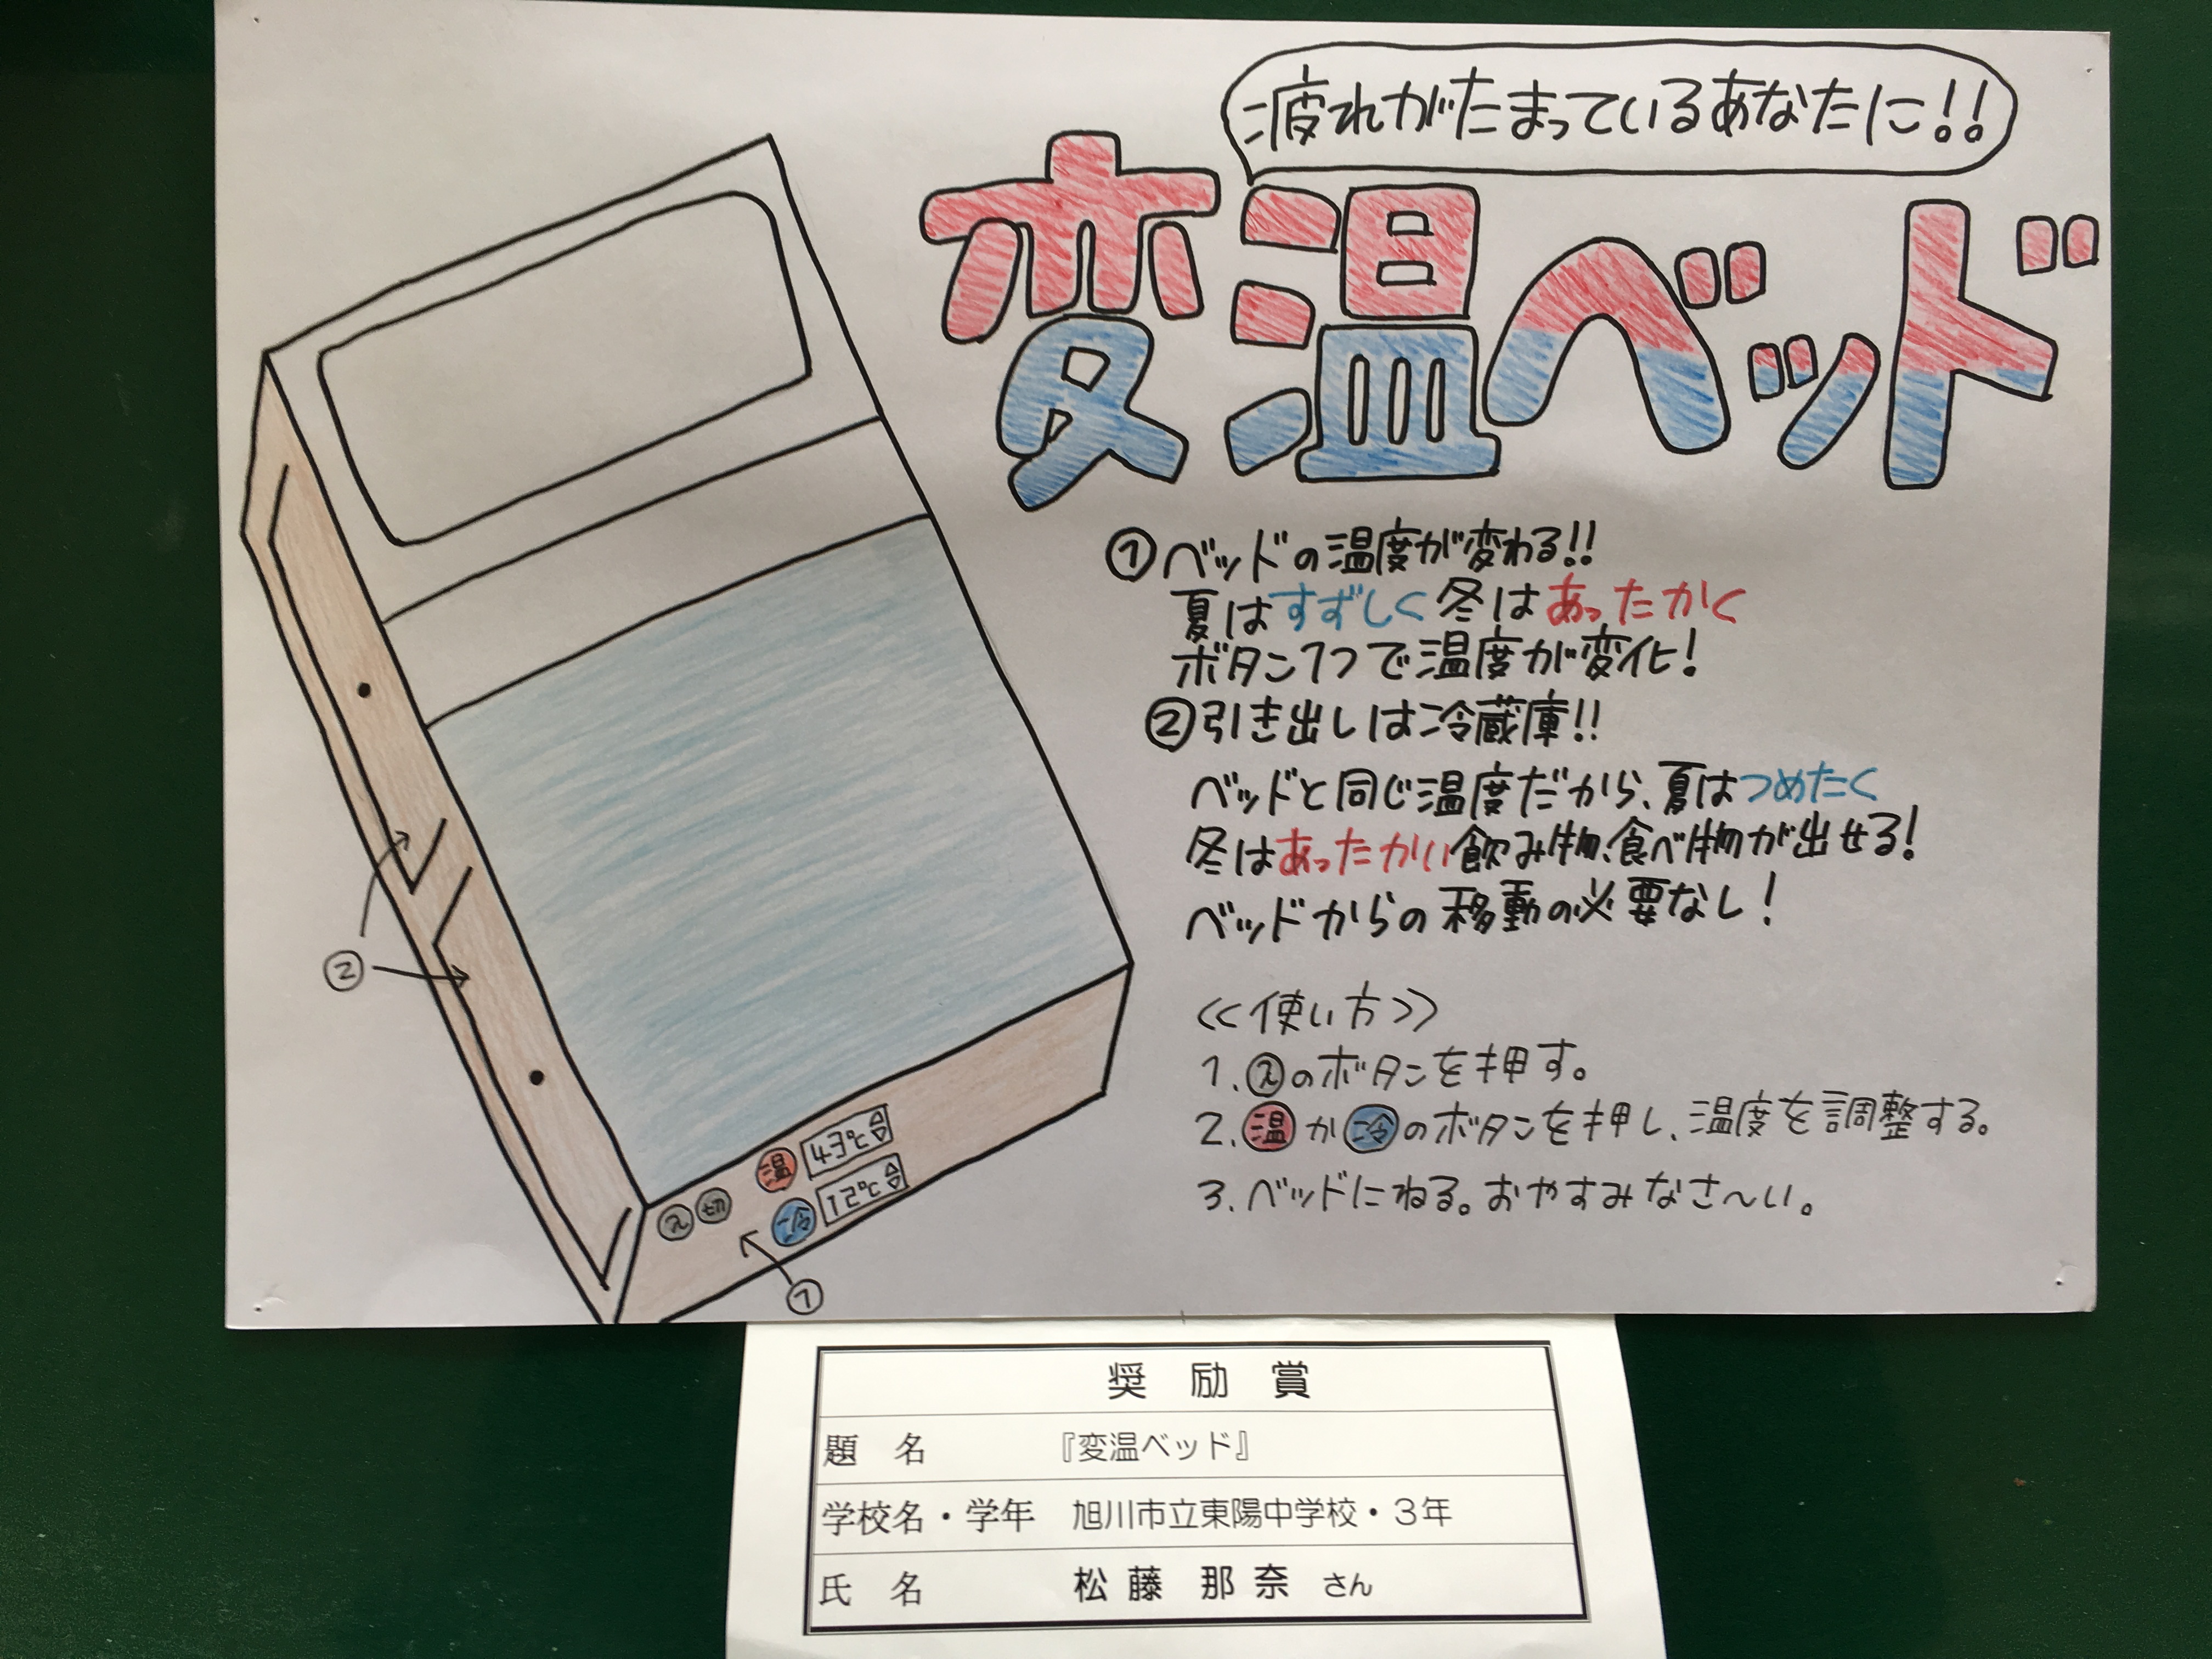 疲れがたまっているあなたに!!
変温ベッド
①ベッドの温度が変わる!!
夏はすずしく冬はあったかく
ボタン1つで温度が変化!
②引き出しは冷蔵庫!!
ベッドと同じ温度だから、夏はつめたく
冬はあったかい飲み物、食べ物が出せる!
ベッドからの移動の必要なし!
<<使い方>>
1.入のボタンを押す。
2.温か冷のボタンを押し、温度を調整する。
3.ベッドにねる。おやすみなさ〜い。
②
温 43℃
入 切 冷 12℃
①
奨励賞
題名 『変温ベッド』
学校名・学年 旭川市立東陽中学校・3年
氏名 松藤 那奈 さん